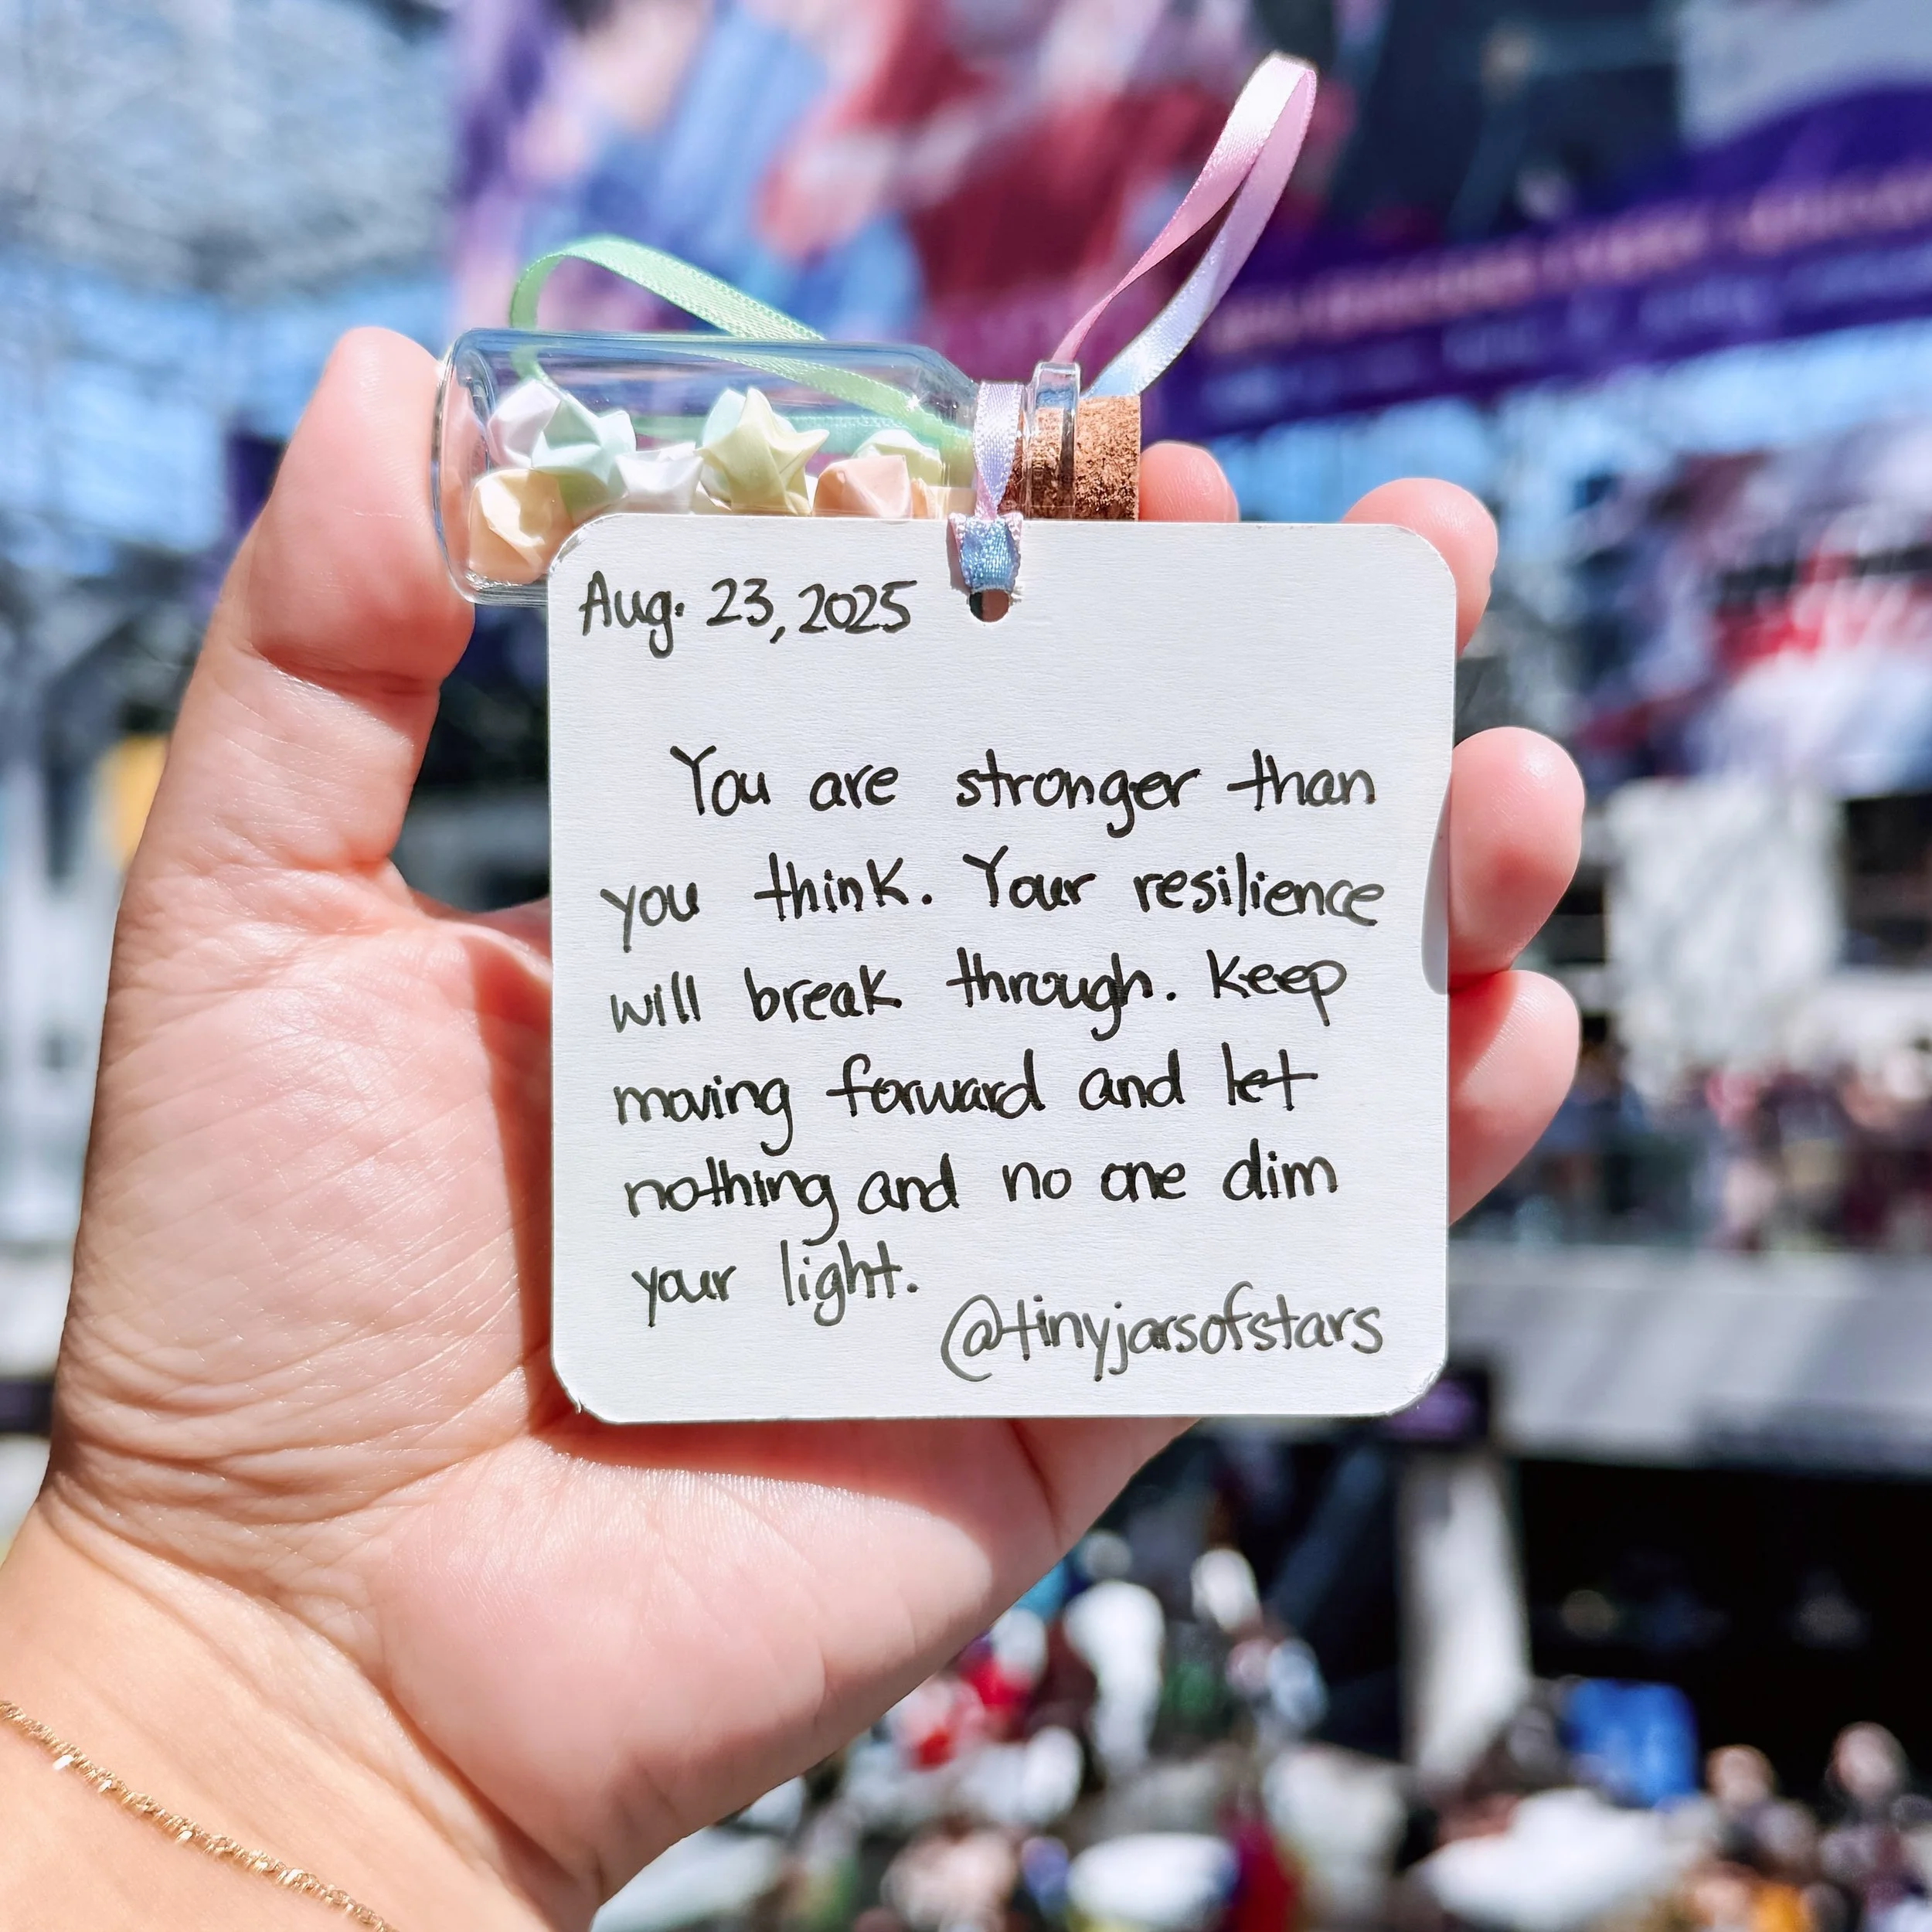 Aug. 23, 2025
You are stronger than
you think. Your resilience
will break through. Keep
moving forward and let
nothing and no one dim
your light.
@tinyjarsofstars